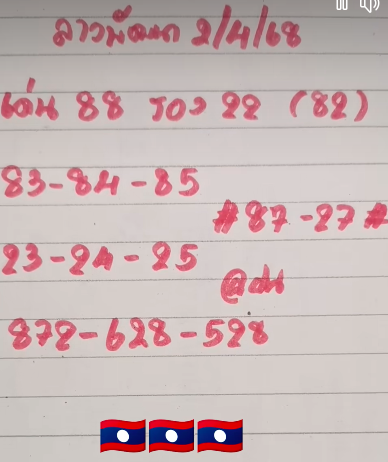 ลาวพัฒนา 2/4/68
เด่น 88 รอง 22 (82)
83-84-85
#87-27#
23-24-25
@ฝน
872-628-528